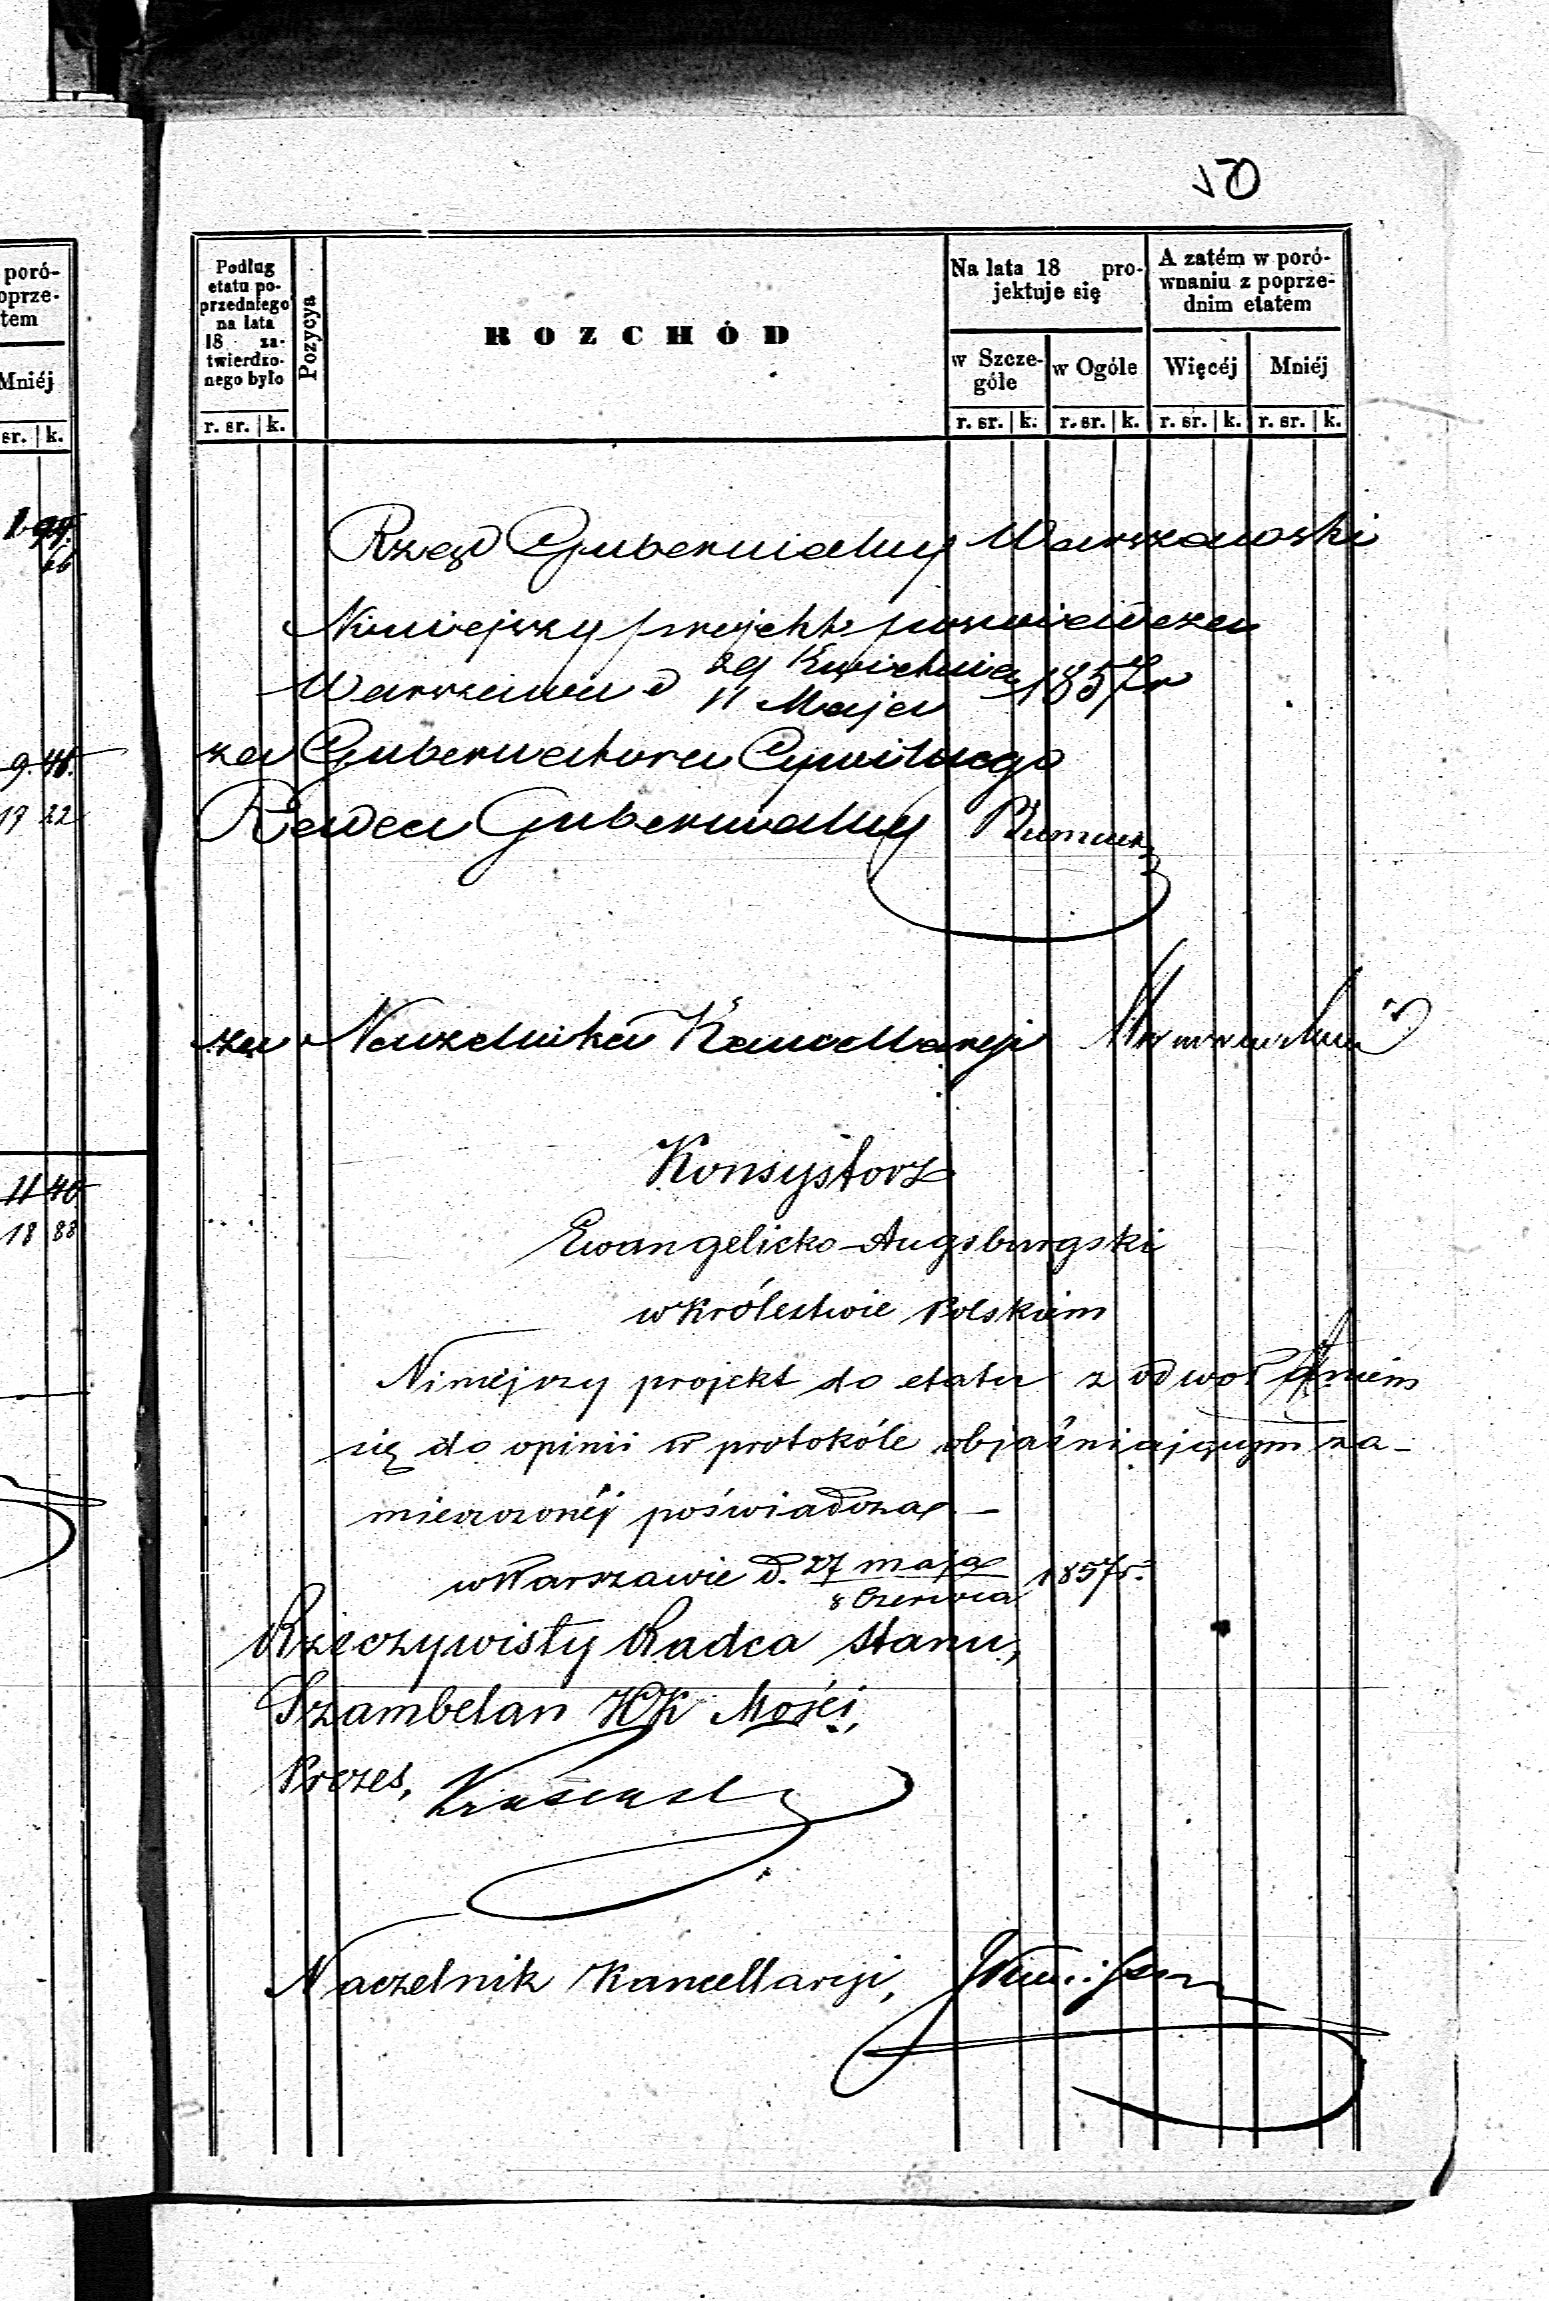 poró-
oprze-
tem
Mniéj
sr. k.
9. 48.
19 22
11 40
18 88
50
Podług
etatu po-
przedniego
na lata
18 za-
twierdzo-
nego było
r. sr. k.
Pozycya
ROZCHÓD
Na lata 18 pro-
jektuje się
w Szcze-
góle
w Ogóle
r. sr. k. r. sr. k.
A zatém w poró-
wnaniu z poprze-
dnim etatem
Więcéj Mniéj
r. sr. k. r. sr. k.
Rząd Gubernialny Warszawski
Niniejszy projekt poswiadcza
Warszawa d 29 Kwietnia 1857 r
11 Maja
za Gubernatora Cywilnego
Radca Gubernialny
za Naczelnika Kancellaryi
Konsystorz
Ewangelicko-Augsburgski
w Królestwie Polskiem
Niniejszy projekt do etatu z odwołaniem
się do opinii w protokóle objaśniającym za-
mieszczonéj poświadcza. –
w Warszawie d. 27 maja 1857 r.
8 Czerwca
Rzeczywisty Radca Stanu,
Szambelan JKK Mości,
Prezes,
Naczelnik Kancellaryi,